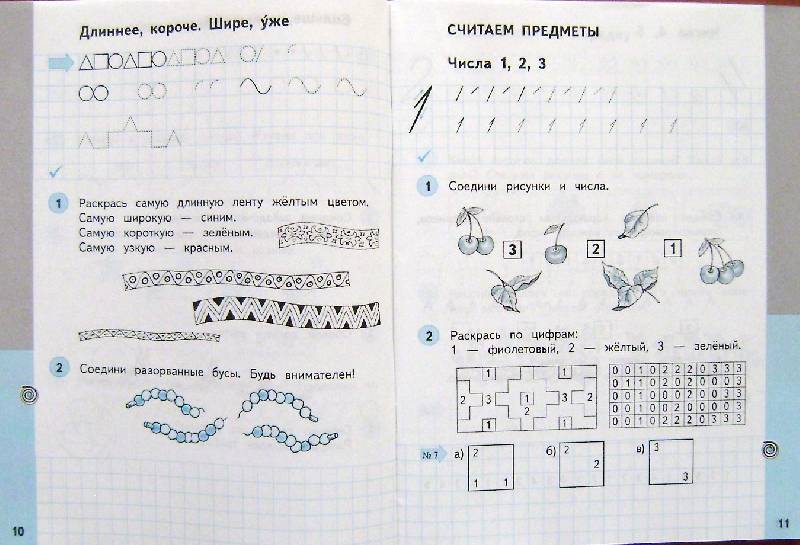 Длиннее, короче. Шире, у́же
1 Раскрась самую длинную ленту жёлтым цветом.
Самую широкую — синим.
Самую короткую — зелёным.
Самую узкую — красным.
2 Соедини разорванные бусы. Будь внимателен!
10
СЧИТАЕМ ПРЕДМЕТЫ
Числа 1, 2, 3
1
1 1 1 1 1 1 1 1
1 Соедини рисунки и числа.
3 2 1
2 Раскрась по цифрам:
1 — фиолетовый, 2 — жёлтый, 3 — зелёный.
1 1
2 3 1 3 2
2
1 1
0 0 1 0 2 2 2 0 3 3 3
0 1 1 0 2 0 2 0 0 0 3
0 0 1 0 0 0 2 0 0 3 3
0 0 1 0 0 2 0 0 0 0 3
0 0 1 0 2 2 2 0 3 3 3
№ 7 а) 2 б) 2 в) 3
2
1 1 3
11